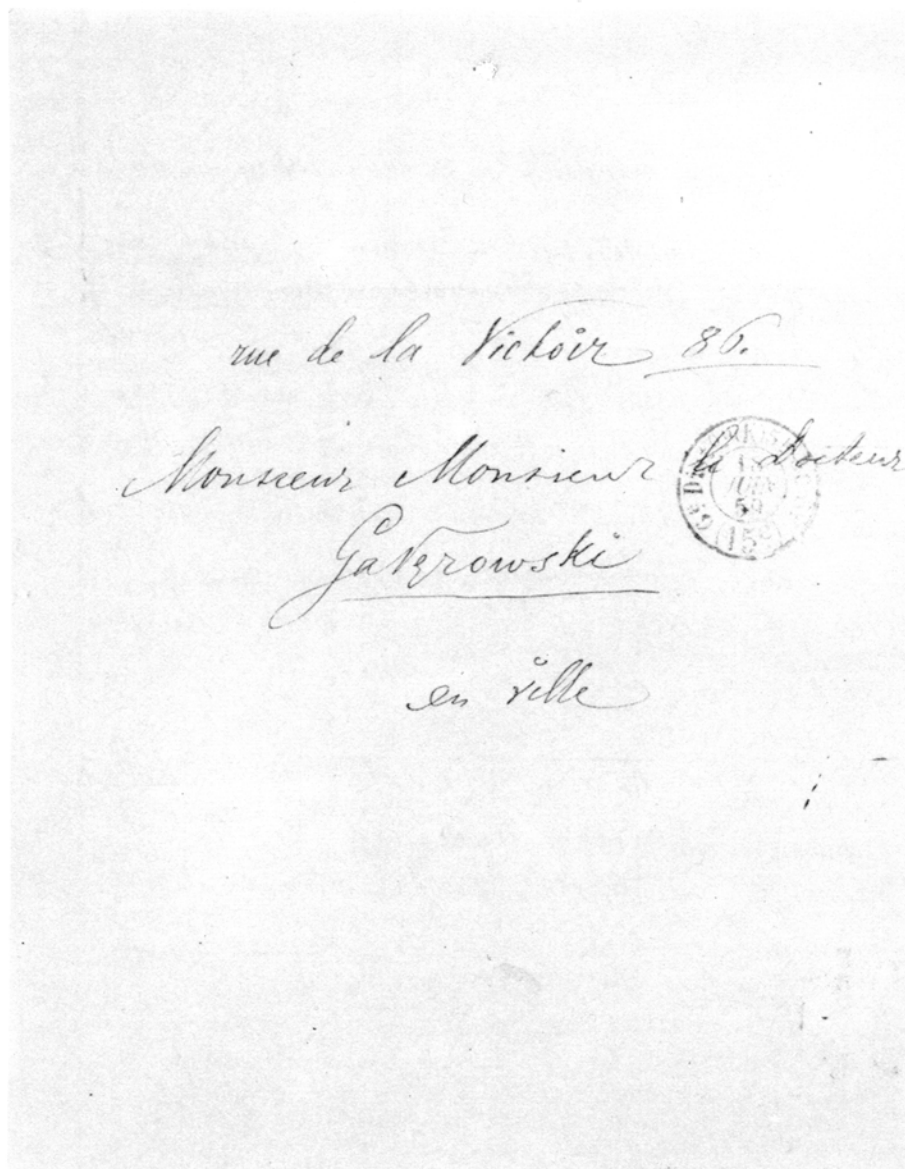 rue de la Victoir 86.
Monsieur Monsieur le Docteur
en ville
JUIN
(15e)